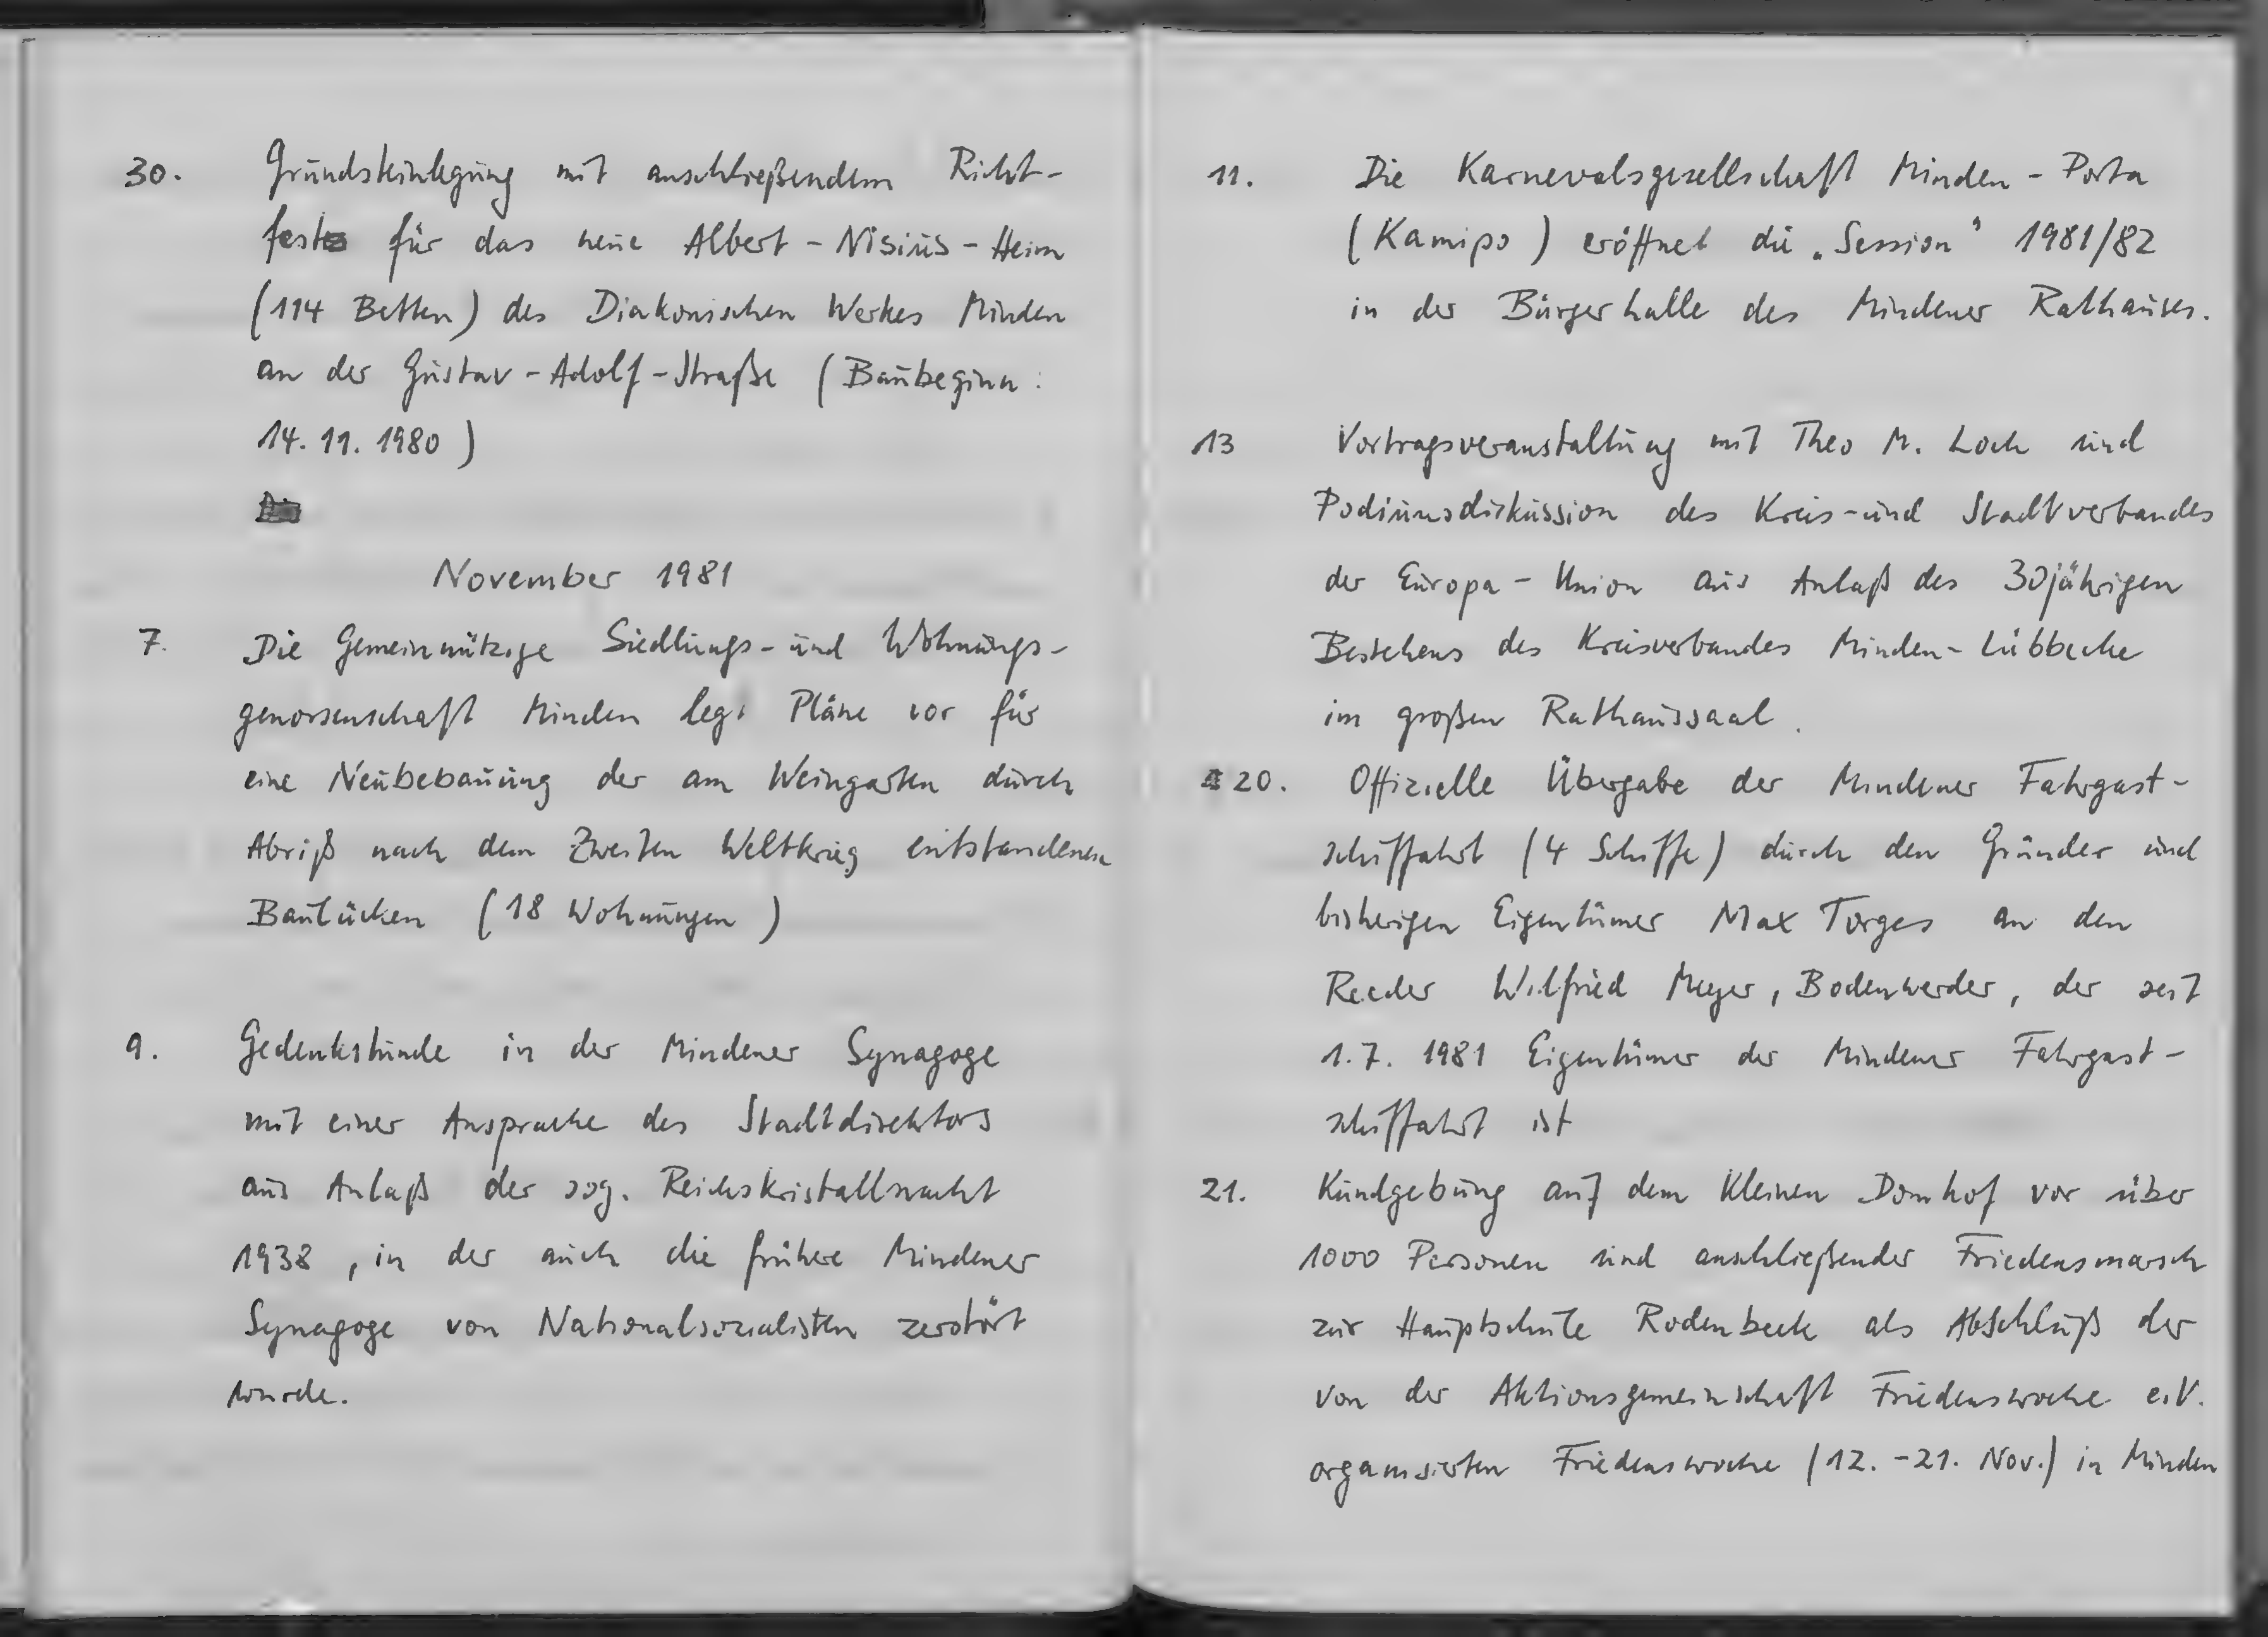 30. Grundsteinlegung mit anschließendem Richt-
fest für das neue Albert-Nisius-Heim
(114 Betten) des Diakonischen Werkes Minden
an der Gustav-Adolf-Straße (Baubeginn:
14.11.1980)
November 1981
7. Die Gemeinnützige Siedlungs- und Wohnungs-
genossenschaft Minden legt Pläne vor für
eine Neubebauung der am Weingarten durch
Abriß nach dem Zweiten Weltkrieg entstandenen
Baulücken (18 Wohnungen)
9. Gedenkstunde in der Mindener Synagoge
mit einer Ansprache des Stadtdirektors
aus Anlaß der sog. Reichskristallnacht
1938, in der auch die frühere Mindener
Synagoge von Nationalsozialisten zerstört
wurde.
11. Die Karnevalsgesellschaft Minden-Porta
(Kamipo) eröffnet die "Session" 1981/82
in der Bürgerhalle des Mindener Rathauses.
13 Vortragsveranstaltung mit Theo M. Loch und
Podiumsdiskussion des Kreis- und Stadtverbandes
der Europa-Union aus Anlaß des 30jährigen
Bestehens des Kreisverbandes Minden-Lübbecke
im großen Rathaussaal.
20. Offizielle Übergabe der Mindener Fahrgast-
schiffahrt (4 Schiffe) durch den Gründer und
bisherigen Eigentümer Max Torges an den
Reeder Wilfried Meyer, Bodenwerder, der seit
1.7.1981 Eigentümer der Mindener Fahrgast-
schiffahrt ist
21. Kundgebung auf dem Kleinen Domhof vor über
1000 Personen und anschließender Friedensmarsch
zur Hauptschule Rodenbeck als Abschluß der
von der Aktionsgemeinschaft Friedenswoche e.V.
organisierten Friedenswoche (12.-21. Nov.) in Minden